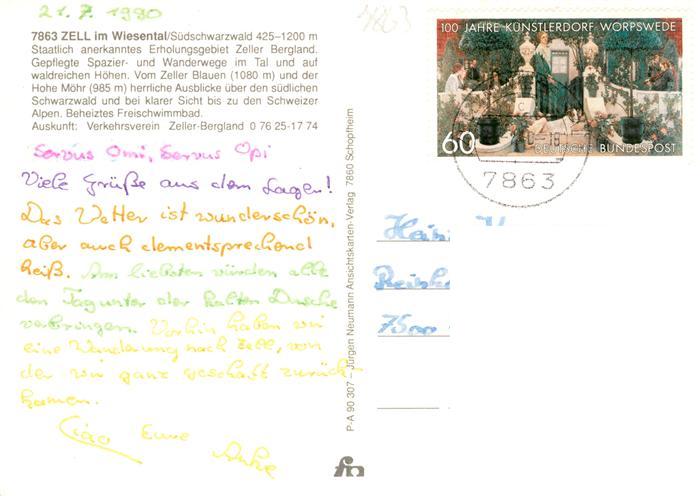 21.7.1990
7863 ZELL im Wiesental/Südschwarzwald 425–1200 m
Staatlich anerkanntes Erholungsgebiet Zeller Bergland.
Gepflegte Spazier- und Wanderwege im Tal und auf
waldreichen Höhen. Vom Zeller Blauen (1080 m) und der
Hohe Möhr (985 m) herrliche Ausblicke über den südlichen
Schwarzwald und bei klarer Sicht bis zu den Schweizer
Alpen. Beheiztes Freischwimmbad.
Auskunft: Verkehrsverein Zeller-Bergland 0 76 25-17 74
Servus Omi, Servus Opi
Viele Grüße aus dem Lager!
Das Wetter ist wunderschön,
aber auch dementsprechend
heiß. Am liebsten würden alle
den Tag unter der kalten Dusche
verbringen. Vorhin haben wir
eine Wanderung nach Zell, von
der wir ganz geschafft zurück
kamen.
Ciao Eure
Anke
P-A 90 307 – Jürgen Neumann Ansichtskarten-Verlag 7860 Schopfheim
4863
100 JAHRE KÜNSTLERDORF WORPSWEDE
60 DEUTSCHE BUNDESPOST
7863
7500